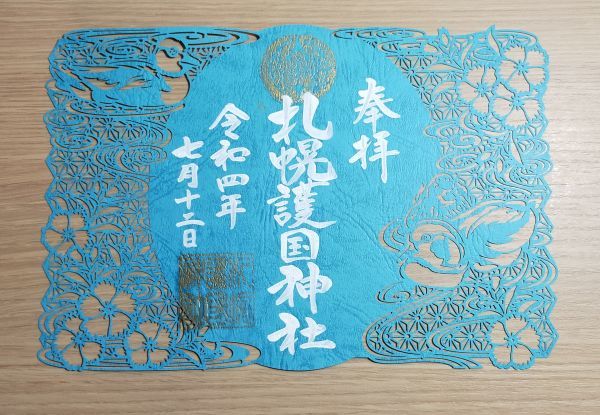 奉拝
札幌護国神社
令和四年
七月十二日